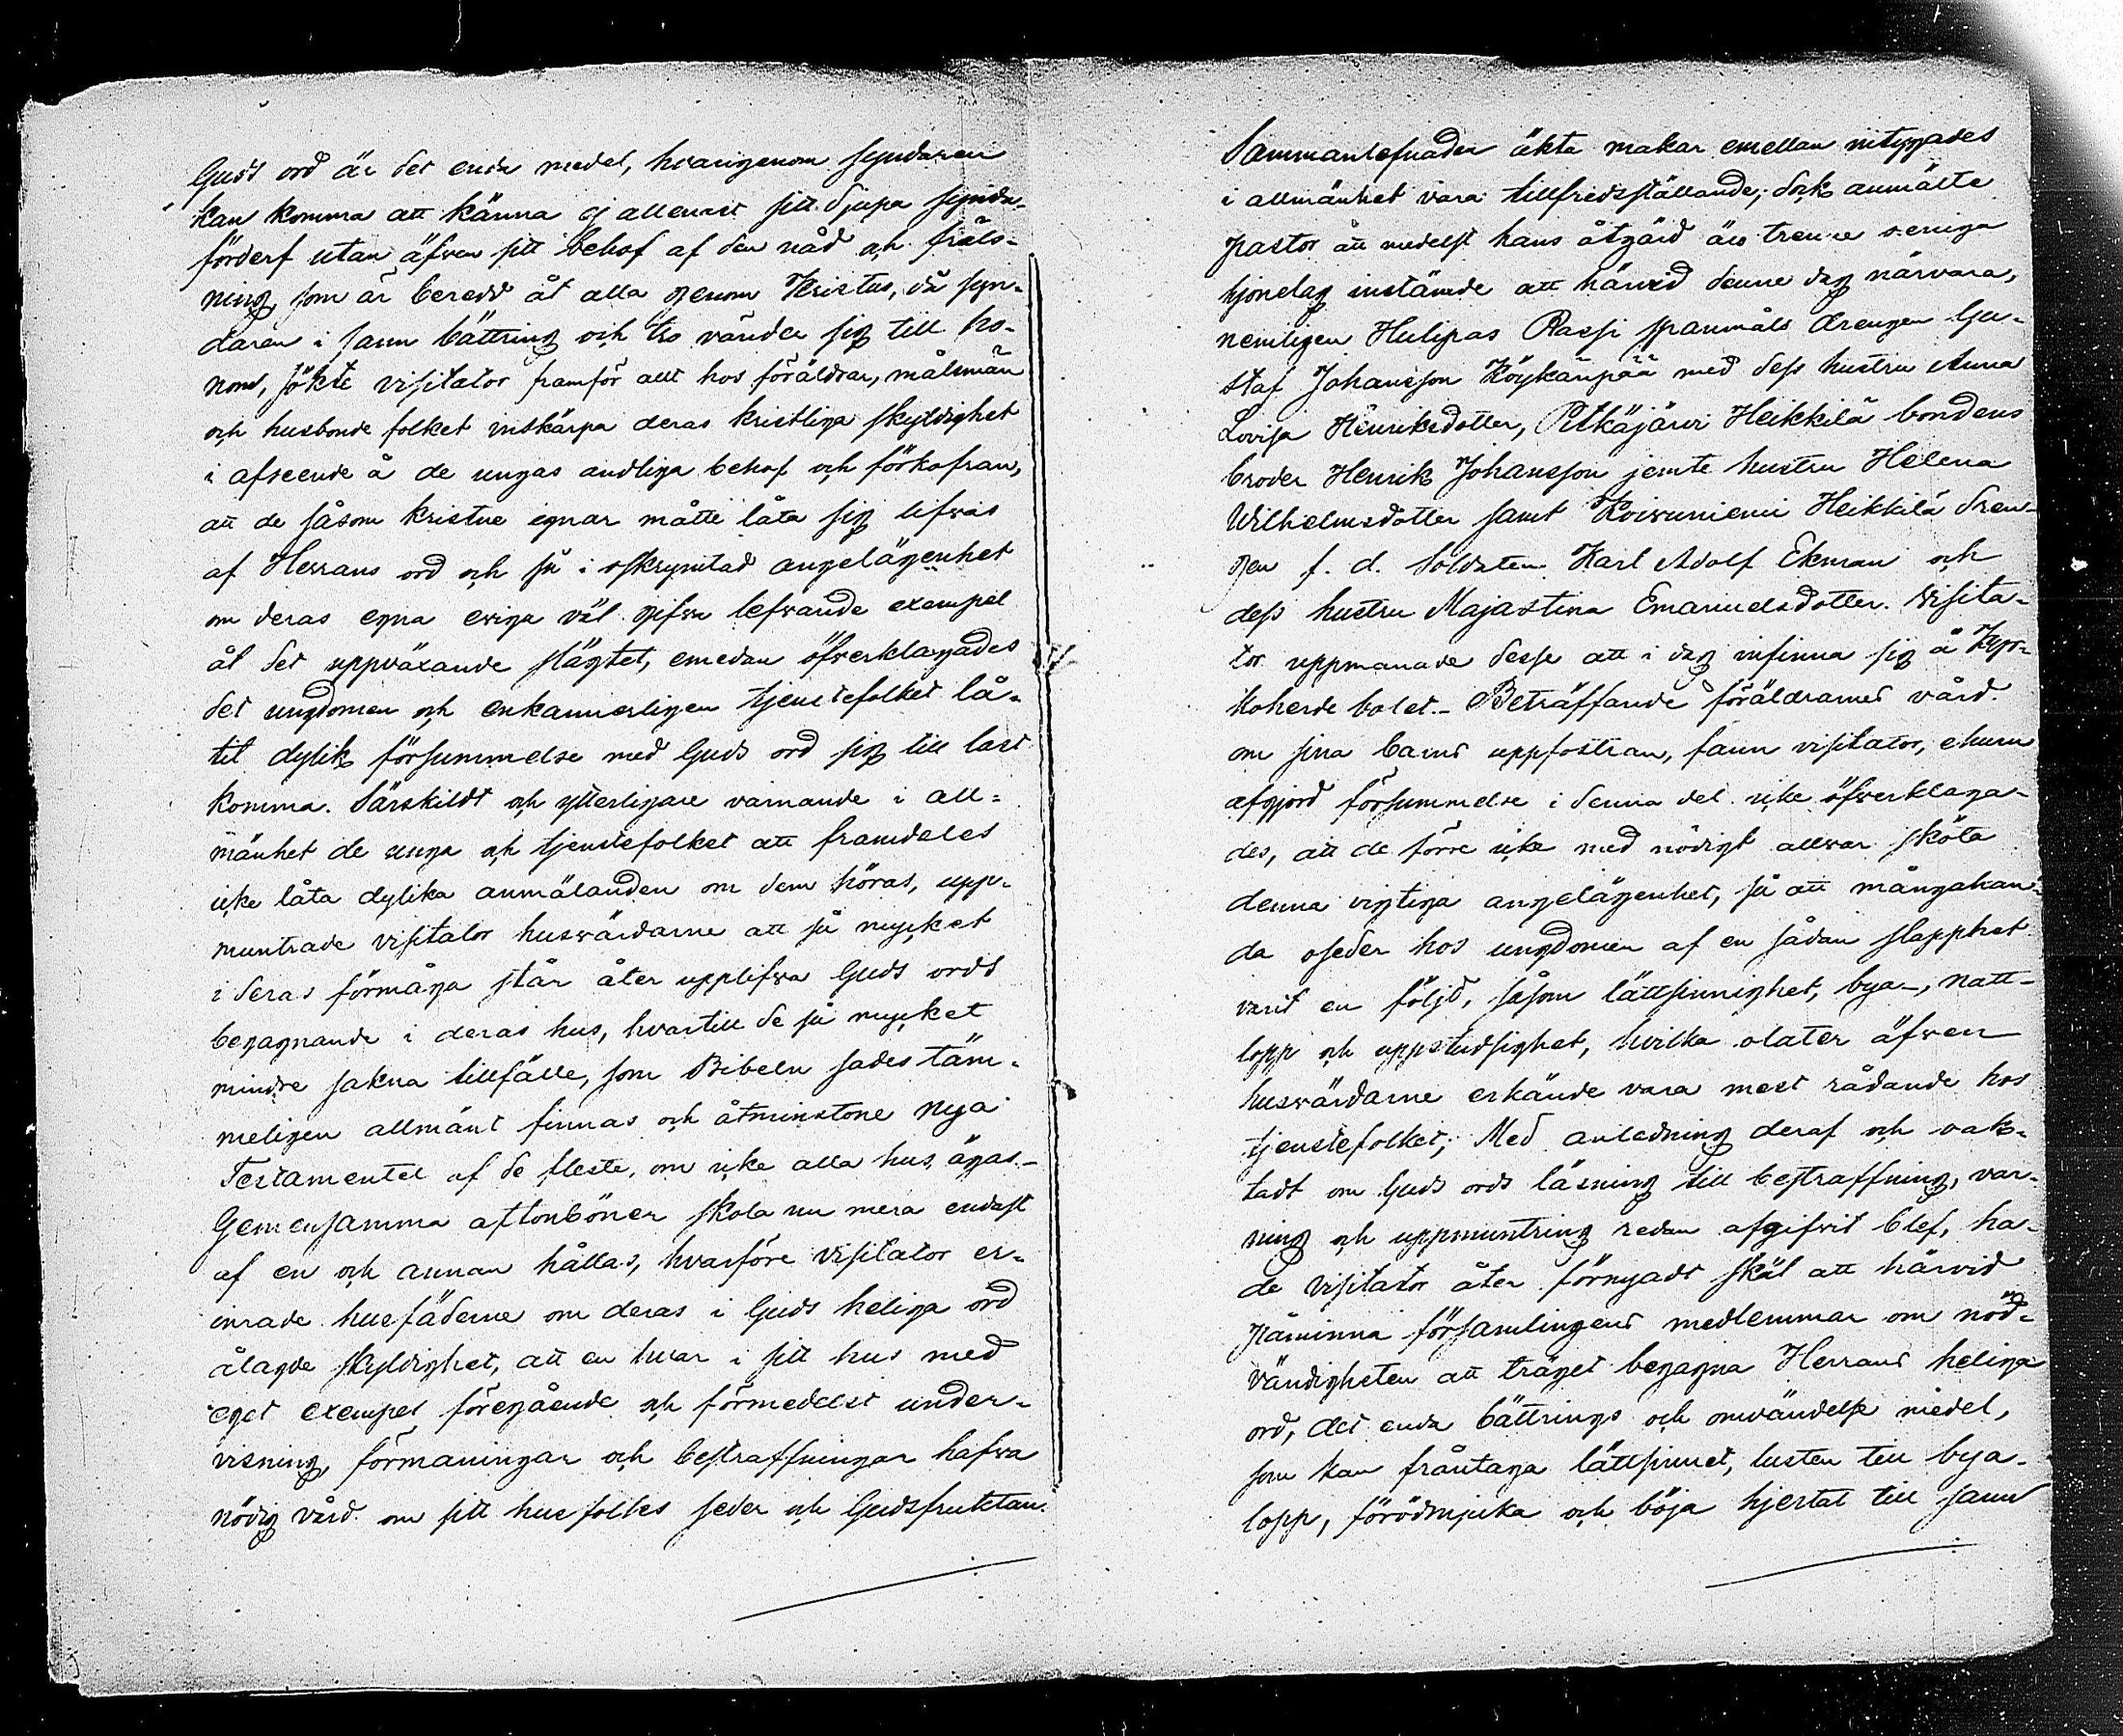 Guds ord är det enda medel, hvarigenom syndaren
kan komma att känna ej allenast sitt djupa synda-
förderf utan äfven sitt behof af den nåd och fräls-
ning, som är beredd åt alla genom Kristus, då syn-
daren i sann bättring och tro vänder sig till ho-
nom, sökte visitator framför allt hos föräldrar, målsmän
och husbonde folket inskärpa deras kristliga skyldighet
i afseende å de ungas andliga behof och förkofran,
att de såsom kristne egnar måtte låta sig lifvas
af Herrans ord och så i oskrymtad angelägenhet
om deras egna eviga väl gifva lefvande exempel
åt det uppväxande slägtet, emedan öfverklagades
det ungdomen och enkannerligen tjenstefolket lå-
tit dylik försummelse med Guds ord sig till last
komma. Särskildt och ytterligare varnande i all-
mänhet de unga och tjenstefolket att framdeles
icke låta dylika anmälanden om dem höras, upp-
muntrade visitator husvärdarne att så mycket
i deras förmåga står åter upplifva Guds ords
begagnande i deras hus, hvartill de så mycket
mindre sakna tillfälle, som Bibeln sades täm-
meligen allmänt finnas och åtminstone Nya
Testamentet af de fleste, om icke alla hus, ägas.
Gemensamma aftonböner skola nu mera endast
af en och annan hållas, hvarföre visitator er-
inrade husfäderne om deras i Guds heliga ord
ålagde skyldighet, att en hvar i sitt hus med
eget exempel föregående och förmedelst under-
visning, förmaningar och bestraffningar hafva
nödig vård om sitt husfolkes seder och Gudsfruktan.
Sammanlefnaden äkta makar emellan vitsordades
i allmänhet vara tillfredsställande; dock anmälte
pastor att medelst hans åtgärd äro trenne oeniga
hjonelag instämde att härvid denne dag närvara,
nemligen Hulipas Rassi spanmåls drengen Gu-
staf Johansson Köykänpää med dess hustru Anna
Lovisa Henriksdotter, Pitkäjärvi Heikkilä bondens
broder Henrik Johansson jemte hustru Helena
Wilhelmsdotter samt Koivuniemi Heikkilä dren-
gen f. d. Soldaten Karl Adolf Ekman och
dess hustru Majastina Emanuelsdotter. Visita-
tor uppmanade desse att i dag infinna sig å Kyr-
koherde bolet. – Beträffande föräldrarnes vård
om sina barns uppfostran, fann visitator, ehuru
afgjord försummelse i denna del icke öfverklaga-
des, att de förre icke med nödigt allvar sköta
denna vigtiga angelägenhet, så att mångahan-
da oseder hos ungdomen af en sådan slapphet
varit en följd, såsom lättsinnighet, bya-, natt-
lopp och uppstudsighet, hvilka olater äfven
husvärdarne erkände vara mest rådande hos
tjenstefolket; Med anledning deraf och vak-
tadt om Guds ords läsning till bestraffning, var-
ning och uppmuntring redan afgifvit blef, ha-
de visitator åter förnyadt skäl att härvid
påminna församlingens medlemmar om nöd-
vändigheten att träget begagna Herrans heliga
ord, det enda bättrings och omvändelse medel,
som kan fråntaga lättsinnet, lusten till bya-
lopp, förödmjuka och böja hjertat till sann